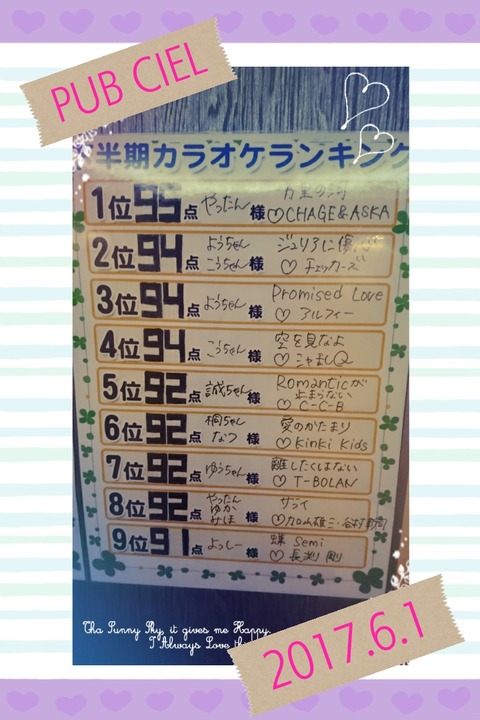 PUB CIEL
半期カラオケランキング
1位 95点 やったん様 万里の河
♡CHAGE&ASKA
2位 94点 ようちゃん こうちゃん様 ジュリアに傷心
♡チェッカーズ
3位 94点 ようちゃん様 Promised Love
♡アルフィー
4位 94点 こうちゃん様 空を見なよ
♡シャ乱Q
5位 92点 誠ちゃん様 Romanticが
止まらない
♡C-C-B
6位 92点 桐ちゃん なつ様 愛のかたまり
♡Kinki Kids
7位 92点 ゆうちゃん様 離したくはない
♡T-BOLAN
8位 92点 やったん ゆか みほ様 サライ
♡加山雄三・谷村新司
9位 91点 よっしー様 蝉 Semi
♡長渕 剛
Tha Sunny Sky, it gives me Happy.
I Always Love
2017.6.1